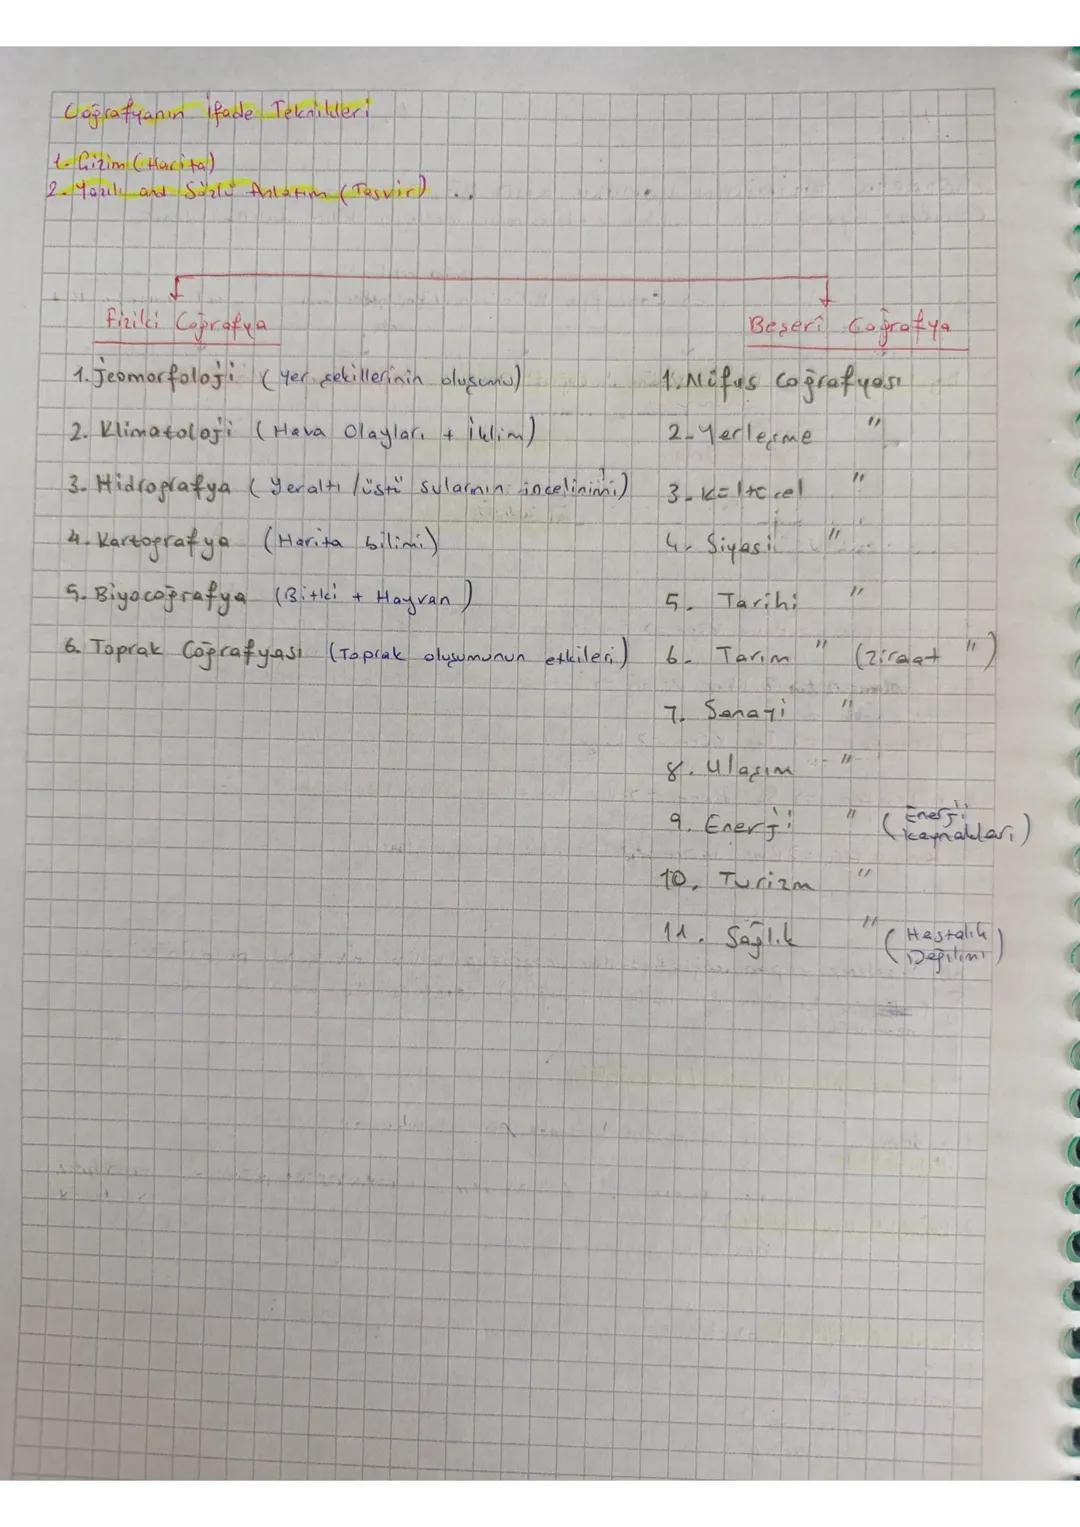 Coğrafyanın İfade Teknikleri
1. Çizim (Harita)
2. Yazılı and Sözlü Anlatım (Tasvir)
Fiziki Coğrafya
1. Jeomorfoloji (Yer şekillerinin oluşumu)
2. Klimatoloji (Hava Olayları + İklim)
3. Hidrografya (Yeraltı /üstü sularının incelinimi)
4. Kartografya (Harita bilimi)
5. Biyocoğrafya (Bitki + Hayvan)
6. Toprak Coğrafyası (Toprak oluşumunun etkileri)
Beşerî Coğrafya
1. Nüfus Coğrafyası
2. Yerleşme "
3. Kültürel "
4. Siyasi "
5. Tarihi "
6. Tarım " (Ziraat ")
7. Sanayi "
8. Ulaşım "
9. Enerji " (Enerji
kaynakları)
10. Turizm "
11. Sağlık " (Hastalık
Dağılımı)